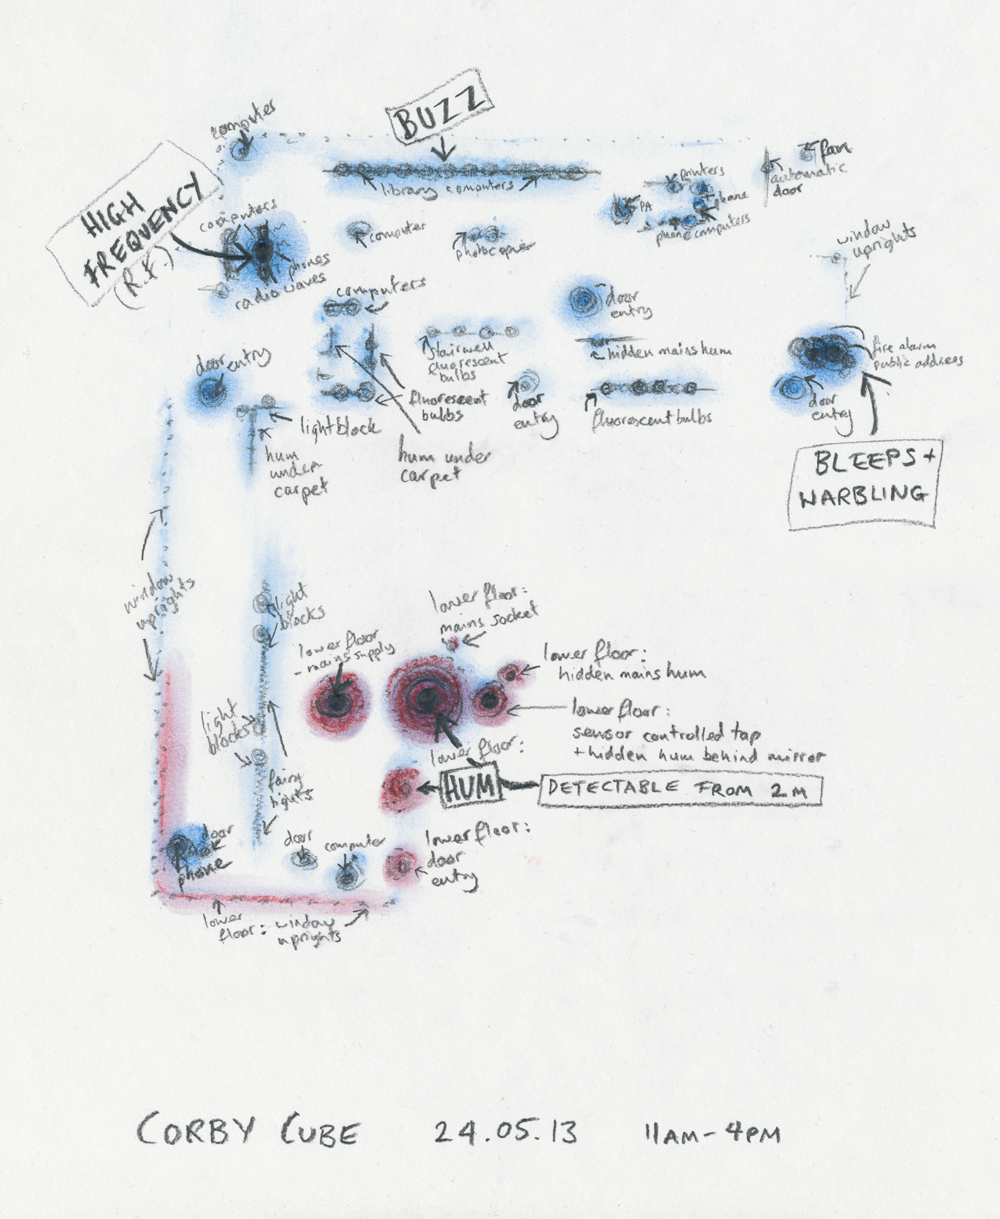 computer
BUZZ
HIGH
FREQUENCY
(R.F.)
library computers
fan
automatic
door
printers
phone
PA
phone computers
computers
phones
radio waves
computer
photocopier
window
uprights
computers
door
entry
stairwell
fluorescent
bulbs
hidden mains hum
fire alarm
public address
door entry
fluorescent
bulbs
door
entry
fluorescent bulbs
door
entry
light block
hum
under
carpet
hum under
carpet
BLEEPS +
WARBLING
window
uprights
light
blocks
lower floor:
mains socket
lower floor
- mains supply
lower floor:
hidden mains hum
lower floor:
sensor controlled tap
+ hidden hum behind mirror
light
blocks
lower floor:
HUM
DETECTABLE FROM 2M
fairy
lights
door
phone
door
computer
lower floor:
door
entry
lower
floor: window
uprights
CORBY CUBE 24.05.13 11AM-4PM